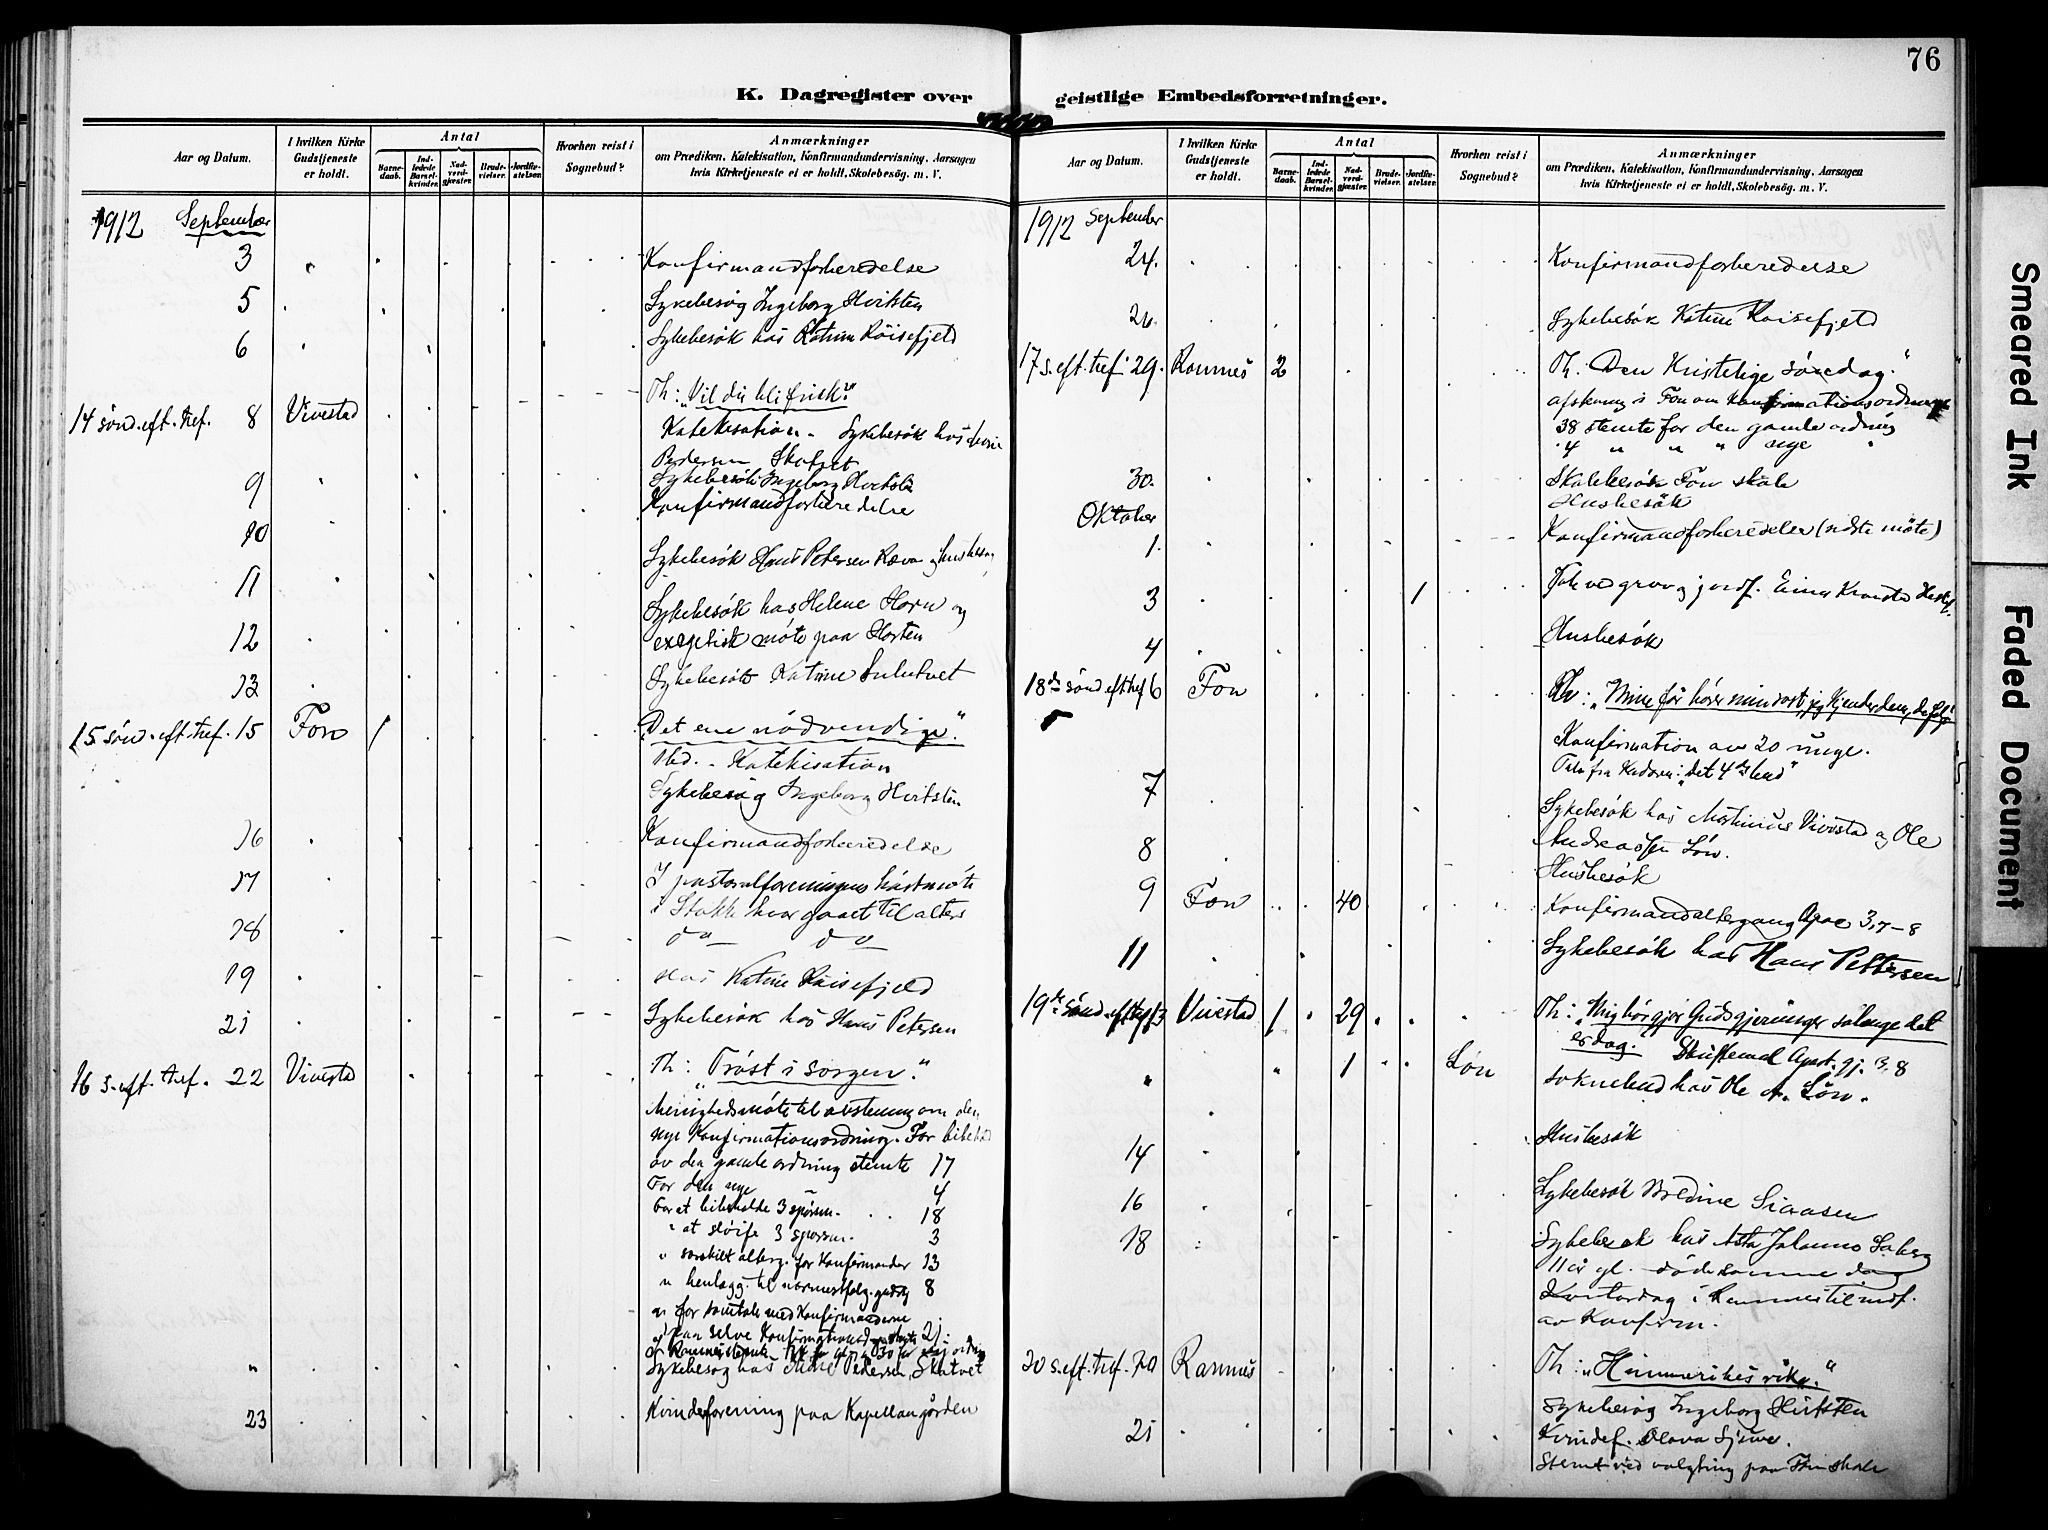 76
K. Dagregister over geistlige Embedsforretninger.
Aar og Datum.
I hvilken Kirke Gudstjeneste er holdt.
Antal
Barnedaab.
Indledede Barselkvinder.
Nadverdgjester.
Brudevielser.
Jordfæstelser.
Hvorhen reist i Sognebud?
Anmærkninger
om Prædiken, Katekisation, Konfirmandundervisning, Aarsagen
hvis Kirketjeneste ei er holdt, Skolebesög. m. V.
1912 September
3 Konfirmandforberedelse
5 Sykebesøg Ingeborg Hvitsten
6 Sykebesök hos Katrine Röisefjeld
14 sönd. eft. tref. 8 Vivestad Th: "Vil du bli frisk?"
Katekisation - Sykebesök hos
Pedersen Skatvet
9 Sykebesök Ingeborg Hvitsten
Konfirmandforberedelse
10
Sykebesök Hans Petersen
11
Sykebesök hos Helene Horn og
12 exegetisk möte paa Horten
13 Sykebesök Katrine
15 sön. eft. tref. 15 Fon 1 "Det ene nödvendige".
Katekisation
Sykebesög Ingeborg Hvitsten
16 Konfirmandforberedelse
17 I pastoralforeningens höstmöte
i Stokke hvor gaaet til alters
18 do do
19 Hos Katrine Röisefjeld
21 Sykebesök hos Hans Petersen
16 s. eft. tref. 22 Vivestad Th: "Tröst i sorgen."
Menighedsmöte til avstemning om den
nye Konfirmationsordning. For
av den gamle ordning stemte 17
For den nye 4
For at bibeholde 3 spörsm. 18
" at slöife 3 spörsm. 3
" særskilt alterg. for Konfirmander 13
" henlagt til nærmest følg. gudstj 8
" for samtale med Konfirmanderne
paa selve Konfirmationsd. 21
" Sykebesøg hos Pedersen, Skatvet
23 Kvindeforening paa Kapellangården
Aar og Datum.
I hvilken Kirke Gudstjeneste er holdt.
Antal
Barnedaab.
Indledede Barselkvinder.
Nadverdgjester.
Brudevielser.
Jordfæstelser.
Hvorhen reist i Sognebud?
Anmærkninger
om Prædiken, Katekisation, Konfirmandundervisning, Aarsagen
hvis Kirketjeneste ei er holdt, Skolebesög. m. V.
1912 September
24. Konfirmandforberedelse
26. Sykebesök Katrine Röisefjeld
17 s. eft. tref. 29. Ramnes 2 Th: Den Kristelige söndag."
i Fon om Konfirmationsordningen
38 stemte for den gamle ordning
4 " " " nye "
30. Skolebesök Fon skole
Husbesök
Oktober
1. Konfirmandforberedelse (sidste möte)
3 1 Tale ved grav og jordf.
4 Husbesök
18de sönd eft tref 6 Fon Th: "Mine får hører min röst, jeg kjender dem, de følg"
Konfirmation av 20 unge.
Tale fra Kordøren: "det 4de bud"
7
Sykebesök hos Martinius Vivestad og Ole
8 Andreassen Lön.
Husbesök
9 Fon 40 Konfirmandaltergang Apoc 3, 7-8
11 Sykebesök hos Hans Pettersen
19de sönd. eft tref 13 Vivestad 1 29 Th: "Mig bör gjör Guds gjerninger sålænge det
er dag.
" 1 Lön Soknebud hos Ole A. Lön.
Husbesök
14
16 Sykebesök
18 Sykebesök hos Asta
11 år gl. döde samme dag
i Ramnes til indf.
av Konfirm.
20 s. eft. tref. 20 Ramnes Th: "Himmerikes rike."
Sykebesøg Ingeborg Hvitsten
21 Kvindef. Olava
Stemt ved valgting paa Fon skole
Smeared Ink
Faded Document